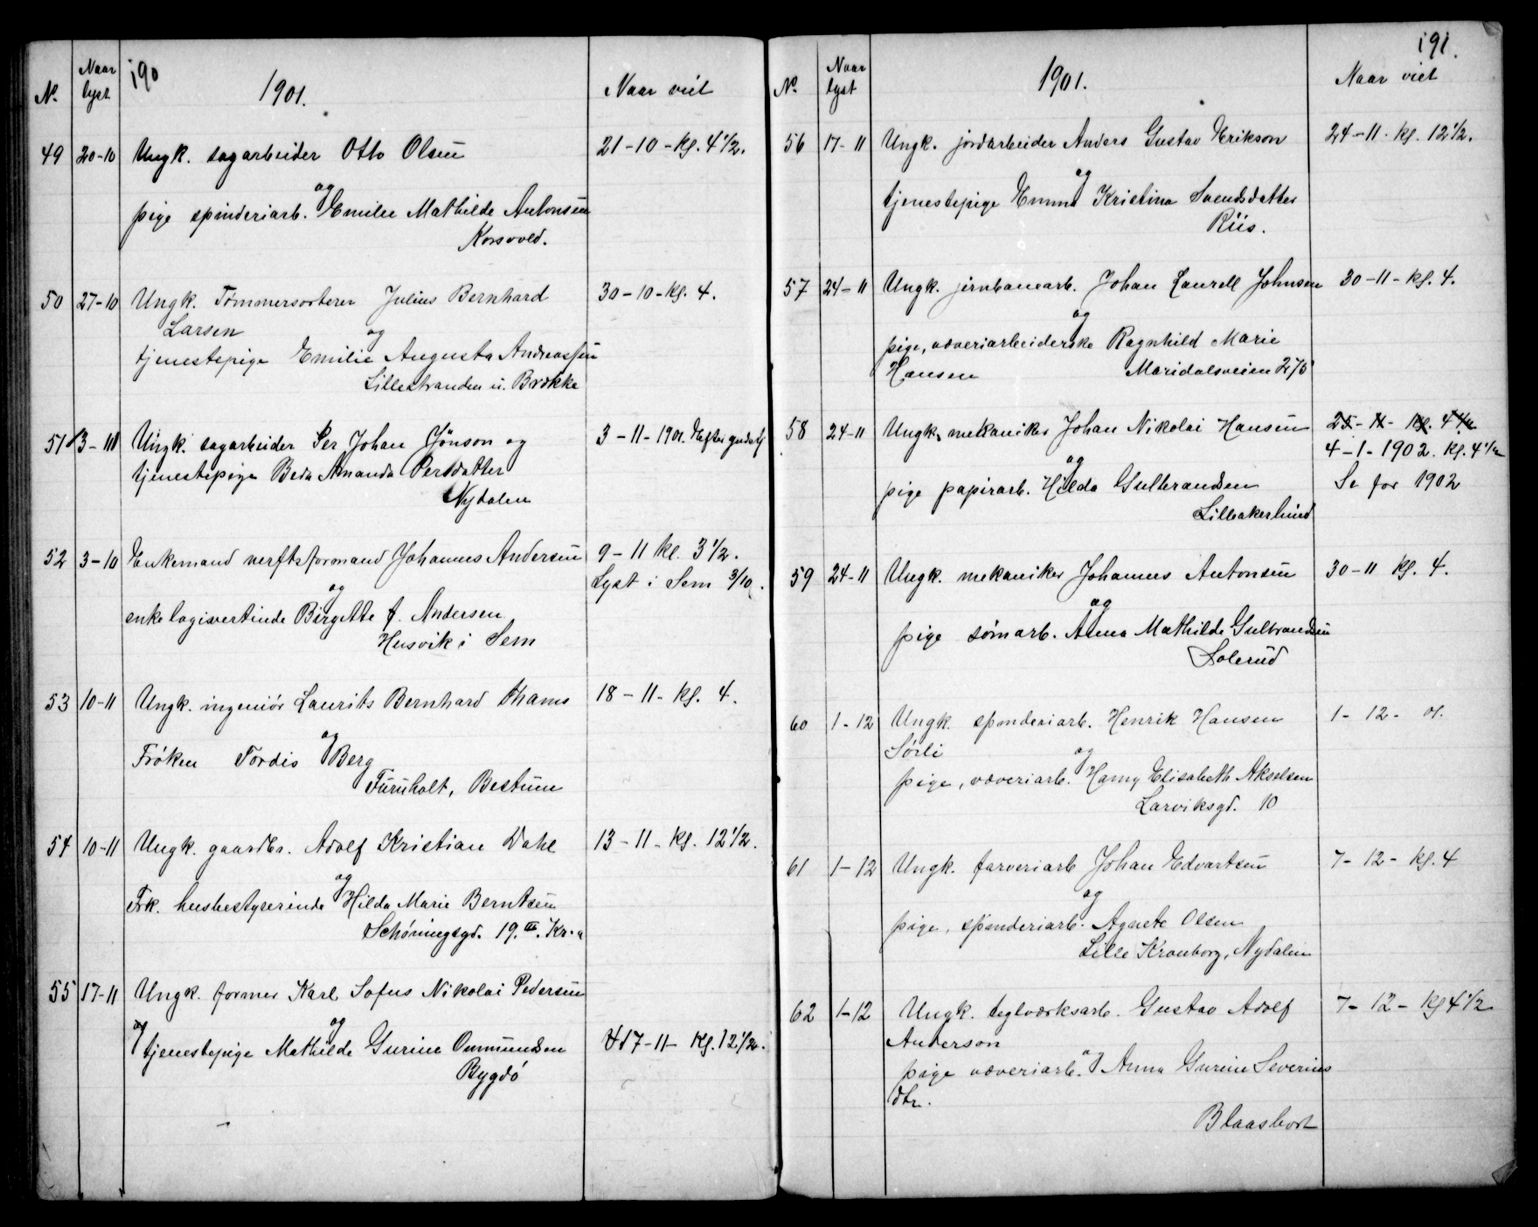 190
1901.
No. Naar lyst Naar viet
49 20-10 Ungk. sagarbeider Otto Olsen 21-10-kl. 4½.
og
pige spinderiarb. Emilie Mathilde Antonsen
Korsvold.
50 27-10 Ungk. Tømmersorterer Julius Bernhard 30-10-kl. 4.
Larsen og
tjenestepige Emilie Augusta Andreassen
Lillestranden u. Brække
51 3-11 Ungk. sagarbeider Per Johan Jönson og 3-11-1901. Efter gudstj
tjenestepige Beda Amanda Persdatter
Nydalen
52 3-10 Enkemand verftsformand Johannes Andersen 9-11 kl. 3½.
og Lyst i Sem 3/10.
enke logivertinde Birgitte f. Andersen
Husvik i Sem
53 10-11 Ungk. ingeniör Laurits Bernhard Thams 18-11-kl. 4.
og
Frøken Tordis Berg
Furuholt, Bestum
54 10-11 Ungk. gaardbr. Adolf Kristian Dahl 13-11-kl. 12½.
og
Frk. husbestyrerinde Hilda Marie Berntsen
Schøningsgd. 19. III. Kr.a
55 17-11 Ungk. former Karl Sofus Nikolai Pedersen
og og
tjenestepige Mathilde Gurine Ommundsen 17-11-kl. 12½.
Bygdö
191.
1901.
No. Naar lyst Naar viet
56 17-11 Ungk. jordarbeider Anders Gustav Erikson 24-11-kl. 12½.
og
tjenestepige Emma Kristina Svendsdatter
Riis.
57 24-11 Ungk. jernbanearb. Johan Laurell Johnsen 30-11-kl. 4.
og
pige, væveriarbeiderske Ragnhild Marie
Hansen Maridalsveien 275
58 24-11 Ungk. mekaniker Johan Nikolai Hansen 25-11-kl. 4½
4-1-1902. kl. 4½
og
pige papirarb. Hilda Gulbrandsen Se for 1902
59 24-11 Ungk. mekaniker Johannes Antonsen 30-11 kl. 4.
og
pige sømarb. Anna Mathilde Gulbrandsen
Solerud
60 1-12 Ungk. spinderiarb. Henrik Hansen 1-12-
Sörli og
pige, væveriarb. Hanny Elisabeth Akselsen
Larviksgd. 10
61 1-12 Ungk. farveriarb Johan Edvartsen 7-12-kl. 4
og
pige, spinderiarb. Agnete Olsen
Lille Kronborg, Nydalen
62 1-12 Ungk. teglværksarb. Gustav Adolf 7-12-kl 4½
Anderson
og
pige væveriarb. Anna Gurine Severins
dtr.
Blaasbort